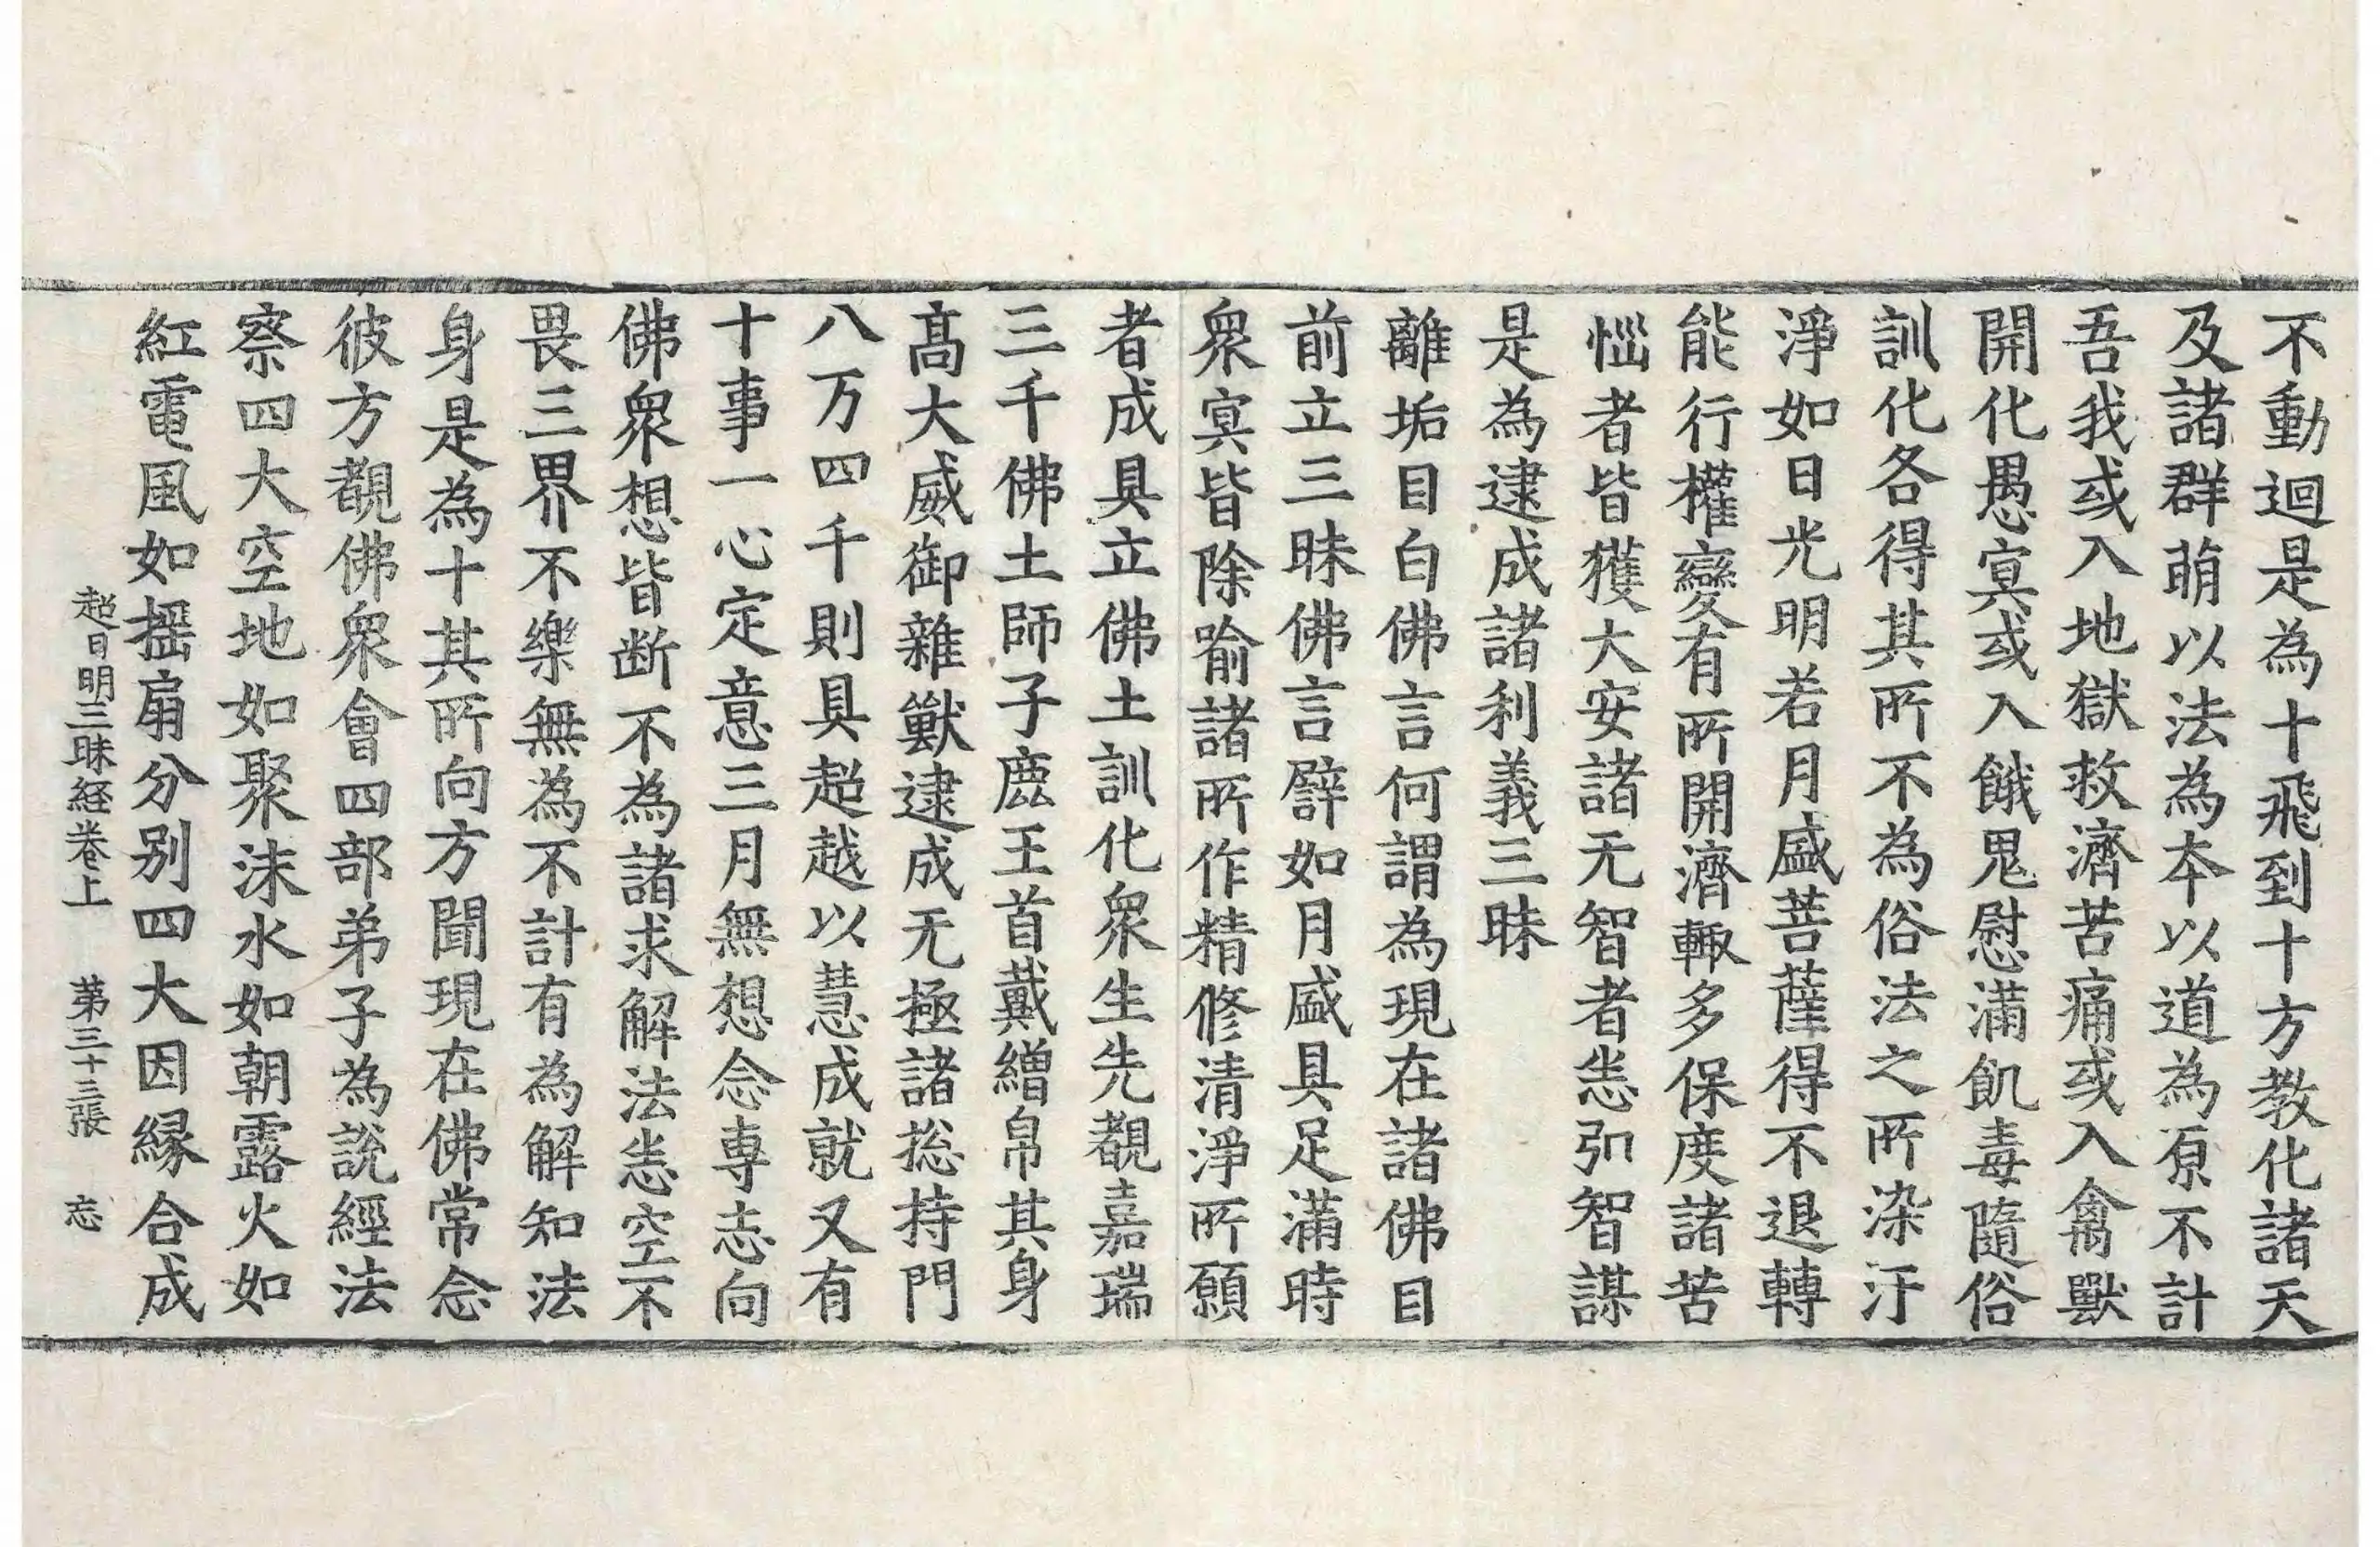 不動迴是為十飛到十方教化諸天
及諸群萌以法為本以道為原不計
吾我或入地獄救濟苦痛或入禽獸
開化愚㝠或入餓鬼慰滿飢毒隨俗
訓化各得其所不為俗法之所染汙
淨如日光明若月盛菩薩得不退轉
能行權變有所開濟輙多保度諸苦
惱者皆獲大安諸无智者恙弘智謀
是為逮成諸利義三昧
離垢目白佛言何謂為現在諸佛目
前立三昧佛言譬如月盛具足滿時
衆㝠皆除喻諸所作精修清淨所願
者成具立佛土訓化衆生先覩嘉瑞
三千佛土師子鹿王首戴繒帛其身
髙大威御雜獸逮成无極諸揔持門
八万四千則具超越以慧成就又有
十事一心定意三月無想念専志向
佛衆想皆断不為諸求解法恙空不
畏三界不樂無為不計有為解知法
身是為十其所向方聞現在佛常念
彼方覩佛衆會四部弟子為說經法
察四大空地如聚沫水如朝露火如
紅電風如摇扇分别四大因縁合成
超日明三昧経卷上　第三十三張　忘